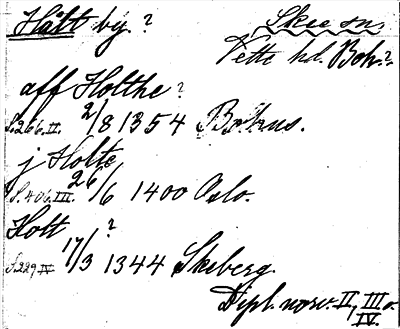 Hått by? Skee sn.
Vette hd. Boh.?
aff Holthe?
S. 266. II. 2/8 1354 Bohus.
j Holte
S. 406. III. 26/6 1400 Oslo.
Hott ?
S. 229. IV. 17/3 1344 Skeberg.
Dipl. norv. II, III o.
IV.